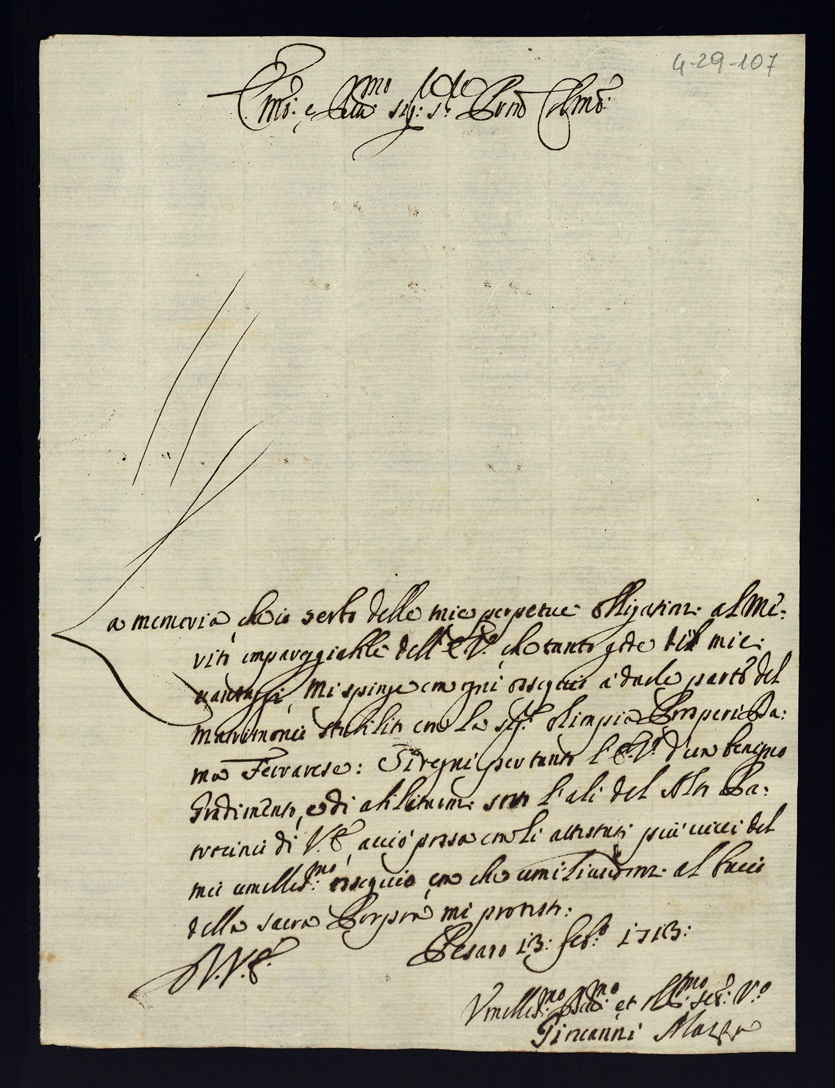 4-29-107
Em̃o: e R̃mo Sig: Sig: Prõn Col̃mo:
La memoria ch'io serbo delle mie perpetue obligazioni al me:
rito impareggiabile dell' E.V. che tanto gode de miei
vantaggi, mi spinge con ogni ossequio à darle parte del
matrimonio stabilito con la sig.ra Olimpia Prosperi Da:
ma Ferrarese: Si degni per tanto l'E.V. d'un benigno
Gradimento, e di abilitarmi sotto l'ali del Alto Pa:
trocinio di V.E. acciò possa con li attestati più vivi del
mio umiliss:mo ossequio, con che umiliandomi al bacio
della sacra Porpora mi protesto:
Pesaro 13: Feb.o 1713:
D.V.E.
Vmiliss:mo Dev:mo et Obl:mo ser: V.o
Giovanni